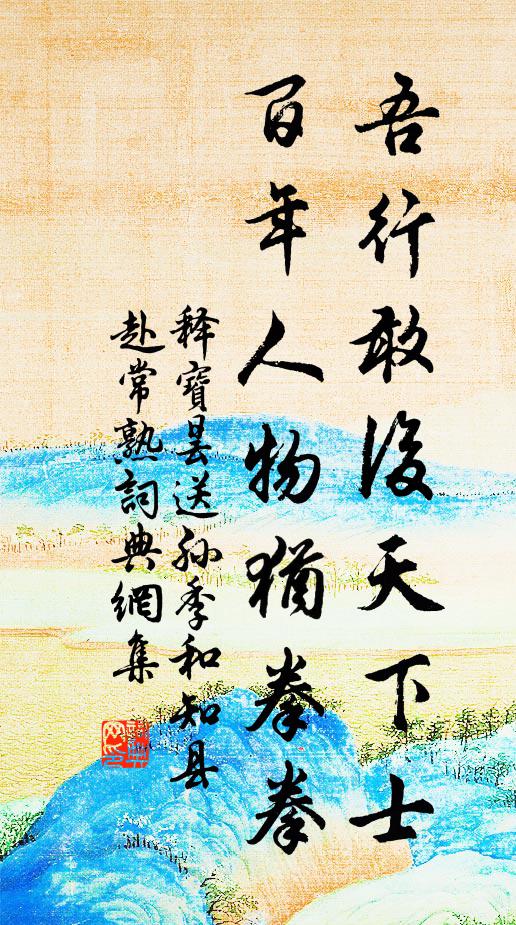 吾行敢後天下士
百年人物猶拳拳
釋寶曇送孙季和知县
赴常熟詞典網集